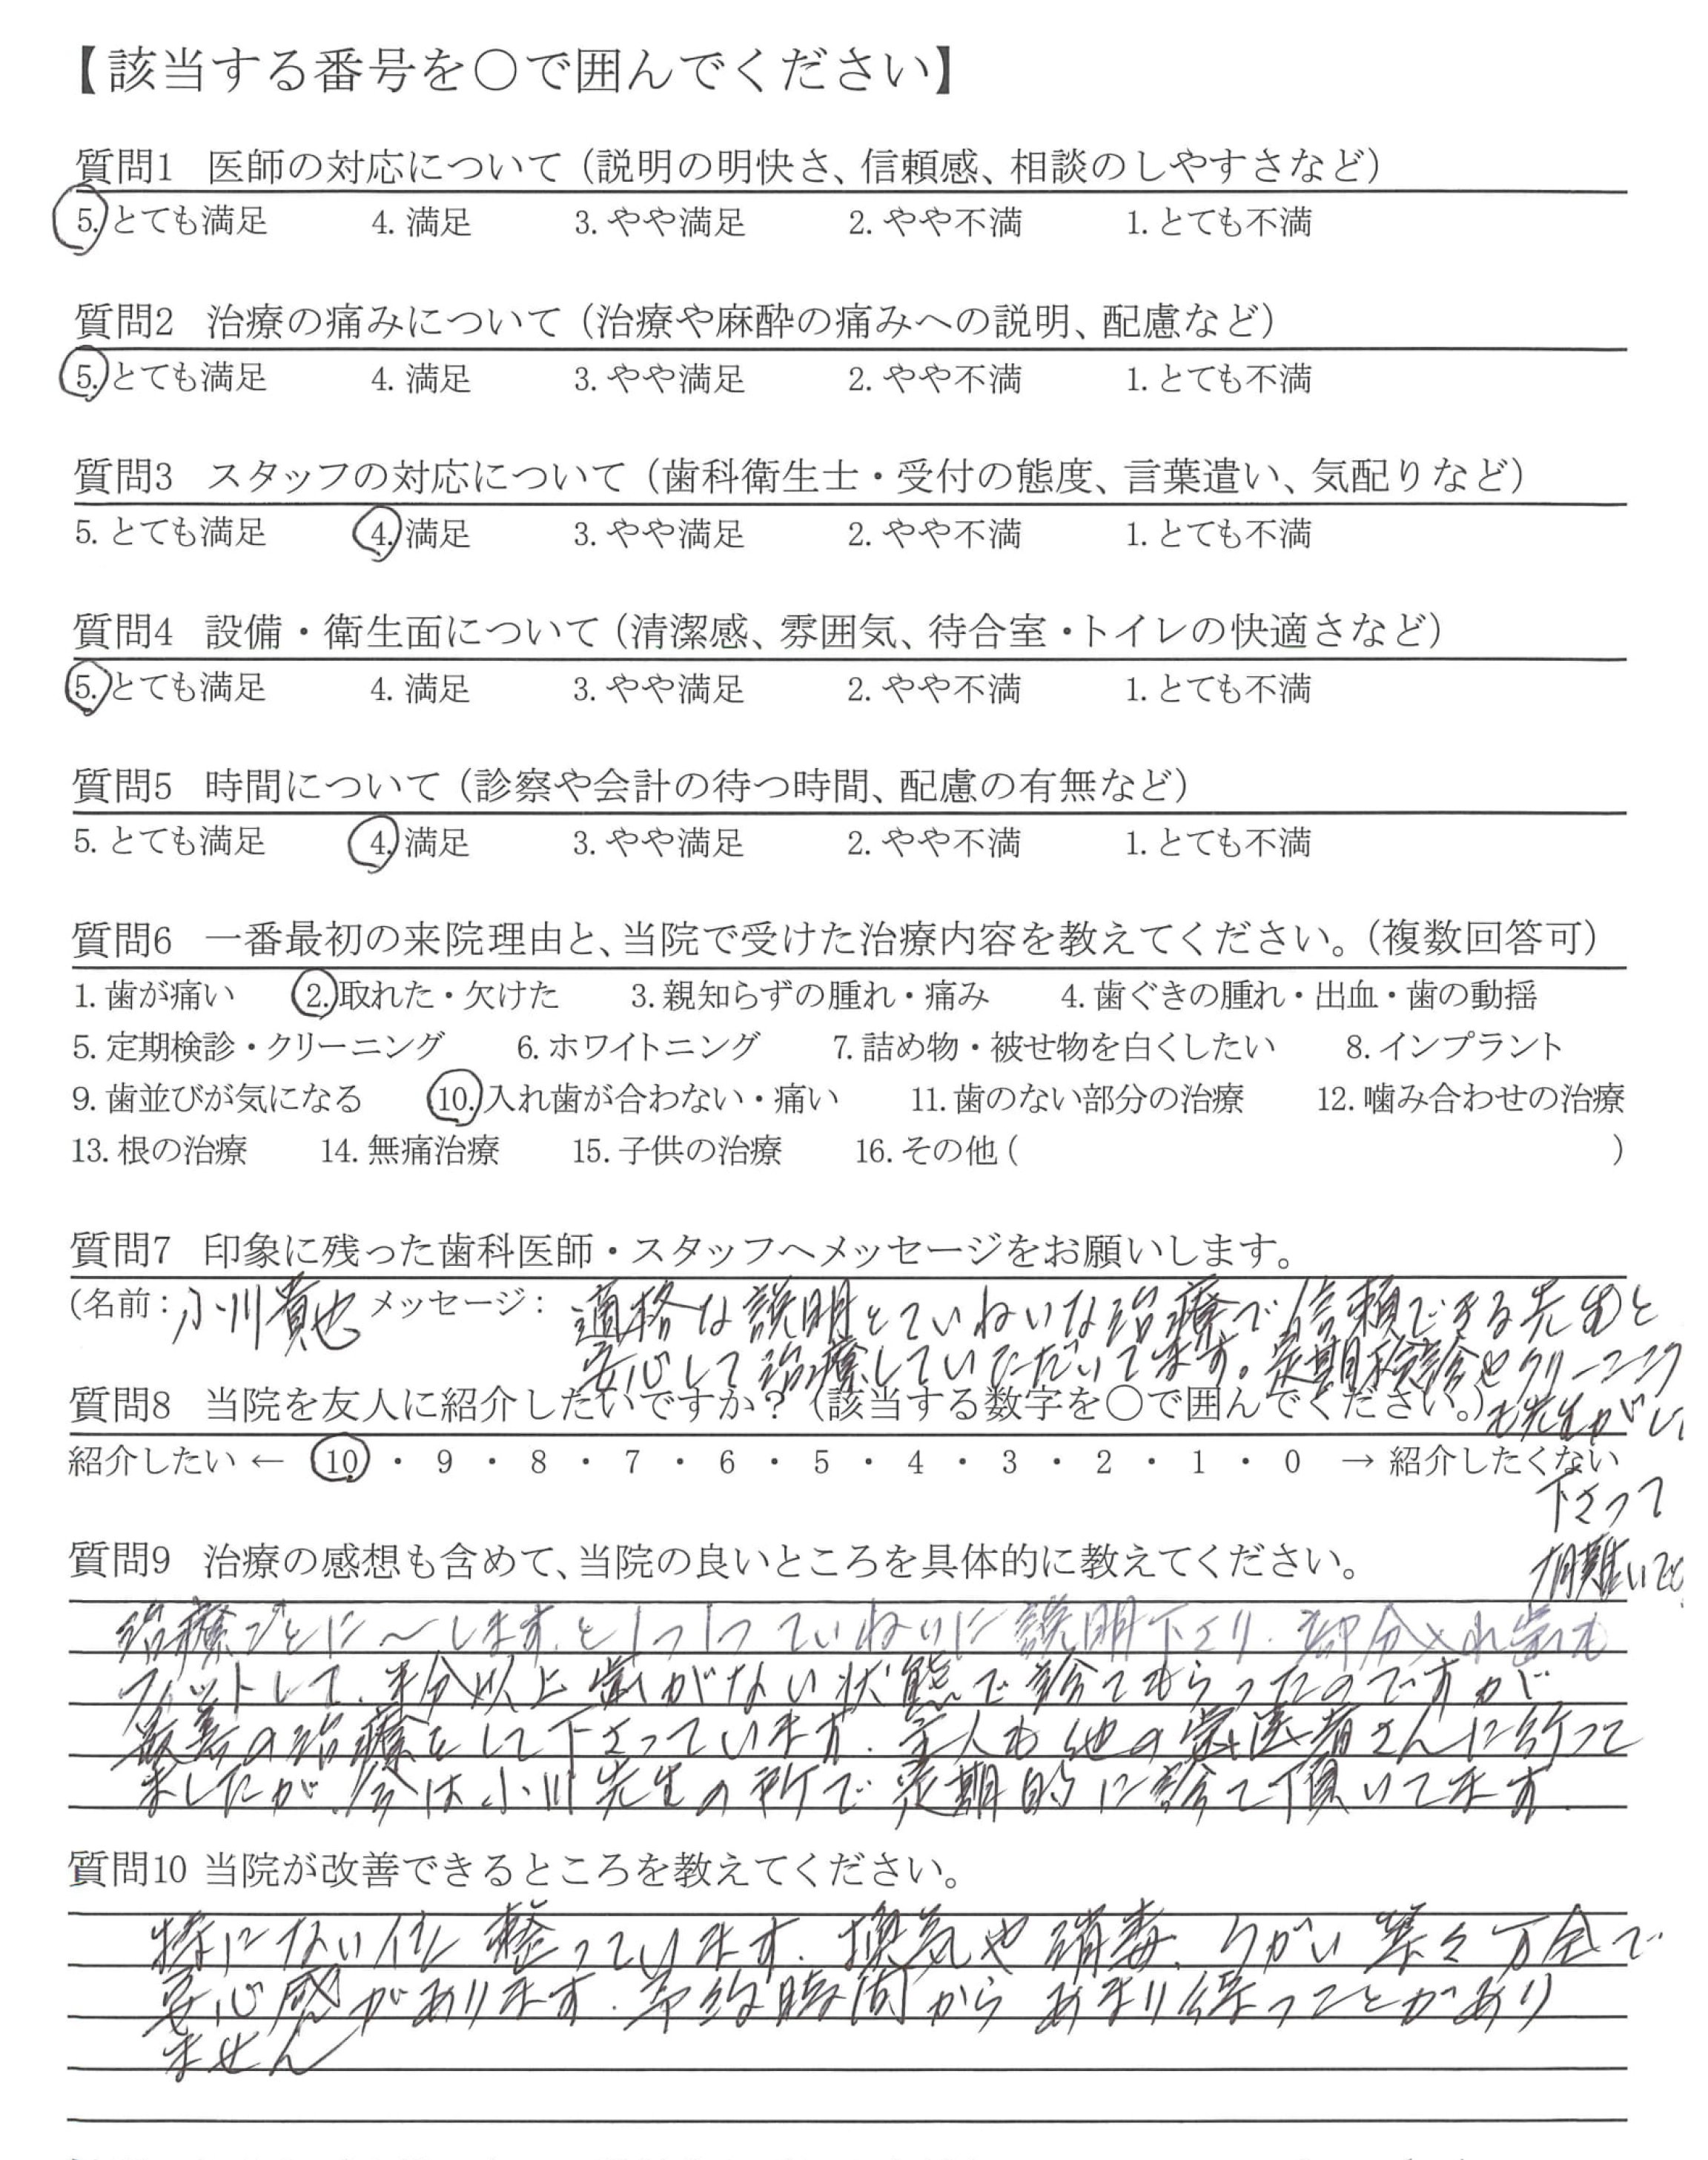 【該当する番号を〇で囲んでください】
質問1 医師の対応について（説明の明快さ、信頼感、相談のしやすさなど）
5. とても満足 4. 満足 3. やや満足 2. やや不満 1. とても不満
質問2 治療の痛みについて（治療や麻酔の痛みへの説明、配慮など）
5. とても満足 4. 満足 3. やや満足 2. やや不満 1. とても不満
質問3 スタッフの対応について（歯科衛生士・受付の態度、言葉遣い、気配りなど）
5. とても満足 4. 満足 3. やや満足 2. やや不満 1. とても不満
質問4 設備・衛生面について（清潔感、雰囲気、待合室・トイレの快適さなど）
5. とても満足 4. 満足 3. やや満足 2. やや不満 1. とても不満
質問5 時間について（診察や会計の待つ時間、配慮の有無など）
5. とても満足 4. 満足 3. やや満足 2. やや不満 1. とても不満
質問6 一番最初の来院理由と、当院で受けた治療内容を教えてください。（複数回答可）
1. 歯が痛い 2. 取れた・欠けた 3. 親知らずの腫れ・痛み 4. 歯ぐきの腫れ・出血・歯の動揺
5. 定期検診・クリーニング 6. ホワイトニング 7. 詰め物・被せ物を白くしたい 8. インプラント
9. 歯並びが気になる 10. 入れ歯が合わない・痛い 11. 歯のない部分の治療 12. 噛み合わせの治療
13. 根の治療 14. 無痛治療 15. 子供の治療 16. その他（ ）
質問7 印象に残った歯科医師・スタッフへメッセージをお願いします。
（名前：小川貴也 メッセージ： 適格な説明とていねいな治療で信頼できる先生と
安心して治療していただいてます。定期検診やクリーニング
も先生がし
下さって
有難いです
質問8 当院を友人に紹介したいですか？（該当する数字を〇で囲んでください。）
紹介したい ← 10 ・ 9 ・ 8 ・ 7 ・ 6 ・ 5 ・ 4 ・ 3 ・ 2 ・ 1 ・ 0 → 紹介したくない
質問9 治療の感想も含めて、当院の良いところを具体的に教えてください。
治療ごとに〜します。と1つ1つていねいに説明下さり、部分入れ歯も
フィットして、半分以上歯がない状態で診てもらったのですが
最善の治療をして下さっています。主人も他の歯医者さんに行って
ましたが、今は小川先生の所で定期的に診て頂いてます。
質問10 当院が改善できるところを教えてください。
特にない位整っています。換気や消毒、うがい等々万全で
安心感があります。予約時間からあまり待つことがあり
ません